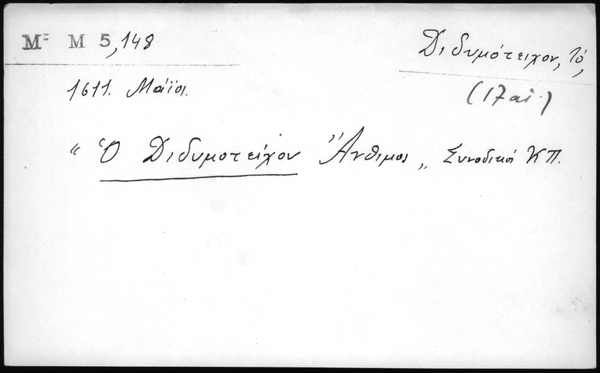 Μ͞ς Μ 5,148
Διδυμότειχον, Τό,
1611. Μάϊοι.
(17 αἰ.)
“ Ὁ Διδυμοτείχου Ἄνθιμος „ Συνοδικά ΚΠ.